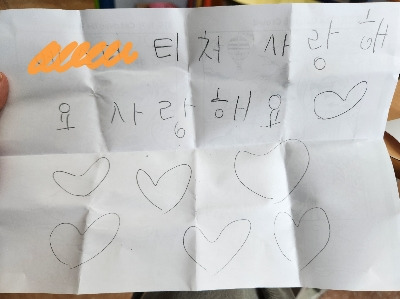 티처 사랑해
요 사랑해요